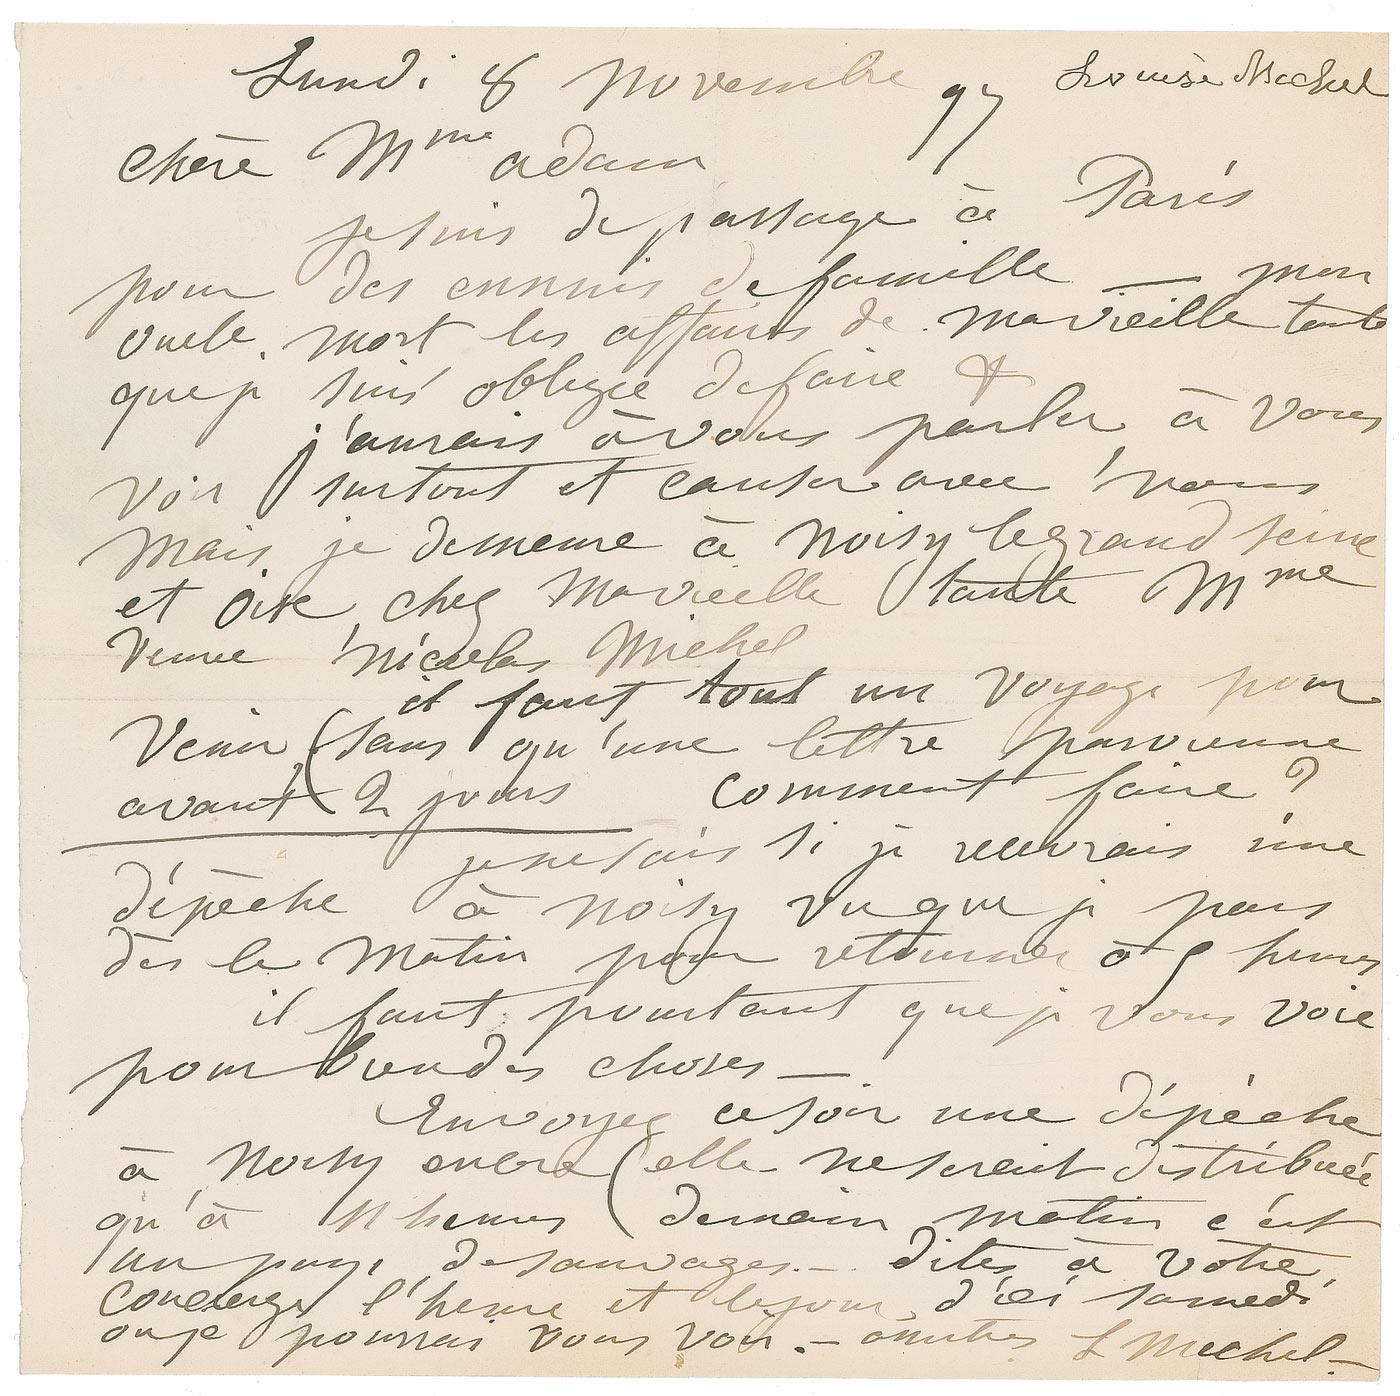 Lundi 8 novembre 97 Louise Michel
Chère Mme adam
je suis de passage à Paris
pour des ennuis de famille — mon
oncle mort les affaires de ma vieille tante
que je suis obligée de faire &
j'aurais à vous parler à vous
voir surtout et causer avec vous
Mais je demeure à Noisy le grand Seine
et Oise chez Ma vieille tante Mme
Veuve Nicolas Michel
il faut tout un voyage pour
Venir (sans qu'une lettre parvienne
avant 2 jours comment faire ?
je ne sais si je recevrais une
dépêche à Noisy vu que je pars
dès le matin pour retourner à 5 heures
il faut pourtant que je vous voie
pour bien des choses —
Envoyez ce soir une dépêche
à Noisy encore (elle ne serait distribuée
qu'à 11 heures (demain matin c'est
un pays de sauvages — dites à votre
concierge l'heure et le jour d'ici samedi
ou je pourrai vous voir. — amitiés L Michel —